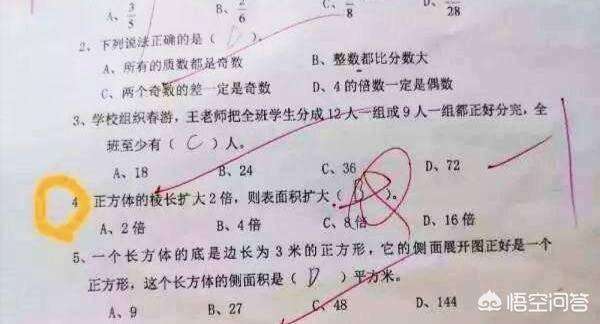 A、3/5 B、2/6 C、/8 D、/28
2、下列说法正确的是（ D ）。
A、所有的质数都是奇数 B、整数都比分数大
C、两个奇数的差一定是奇数 D、4的倍数一定是偶数
3、学校组织春游，王老师把全班学生分成12人一组或9人一组都正好分完，全
班至少有（ C ）人。
A、18 B、24 C、36 D、72
4 正方体的棱长扩大2倍，则表面积扩大（ B ）。
A、2倍 B、4倍 C、8倍 D、16倍
5、一个长方体的底是边长为3米的正方形，它的侧面展开图正好是一个
正方形，这个长方体的侧面积是（ D ）平方米。
A、9 B、27 C、48 D、144
悟空问答